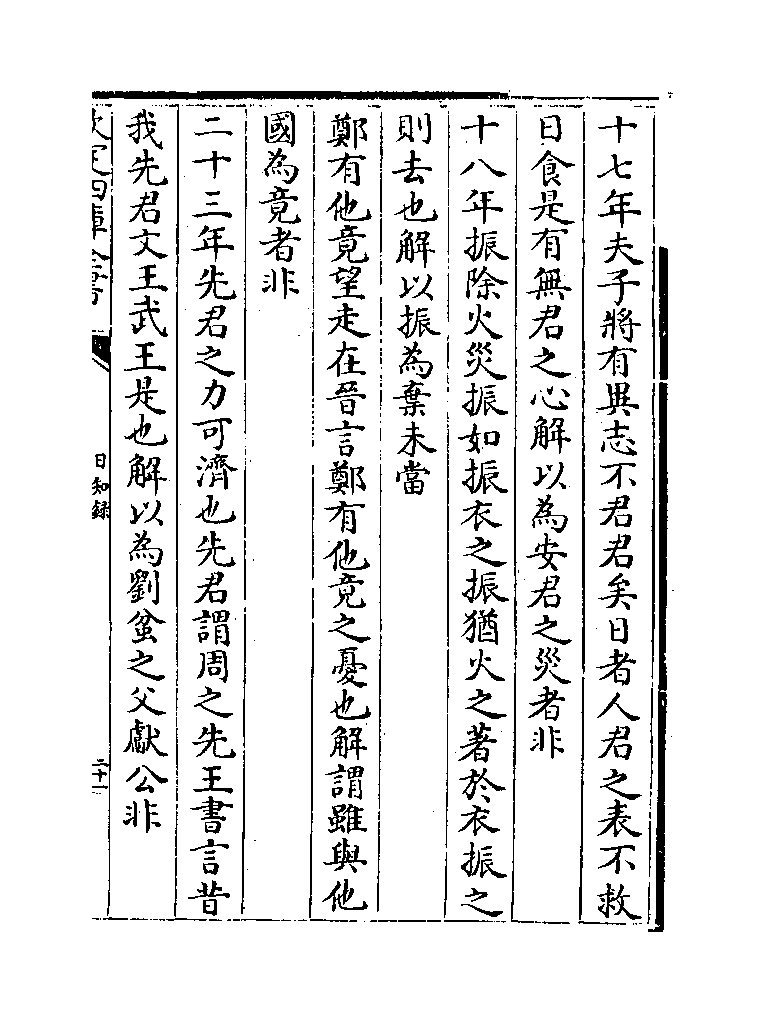 十七年夫子將有異志不君君矣日者人君之表不救
日食是有無君之心解以為安君之災者非
十八年振除火災振如振衣之振猶火之著於衣振之
則去也解以振為棄未當
鄭有他竟望走在晉言鄭有他竟之憂也解謂雖與他
國為竟者非
二十三年先君之力可濟也先君謂周之先王書言昔
我先君文王武王是也解以為劉蚠之父獻公非
欽定四庫全書
日知錄
二十一